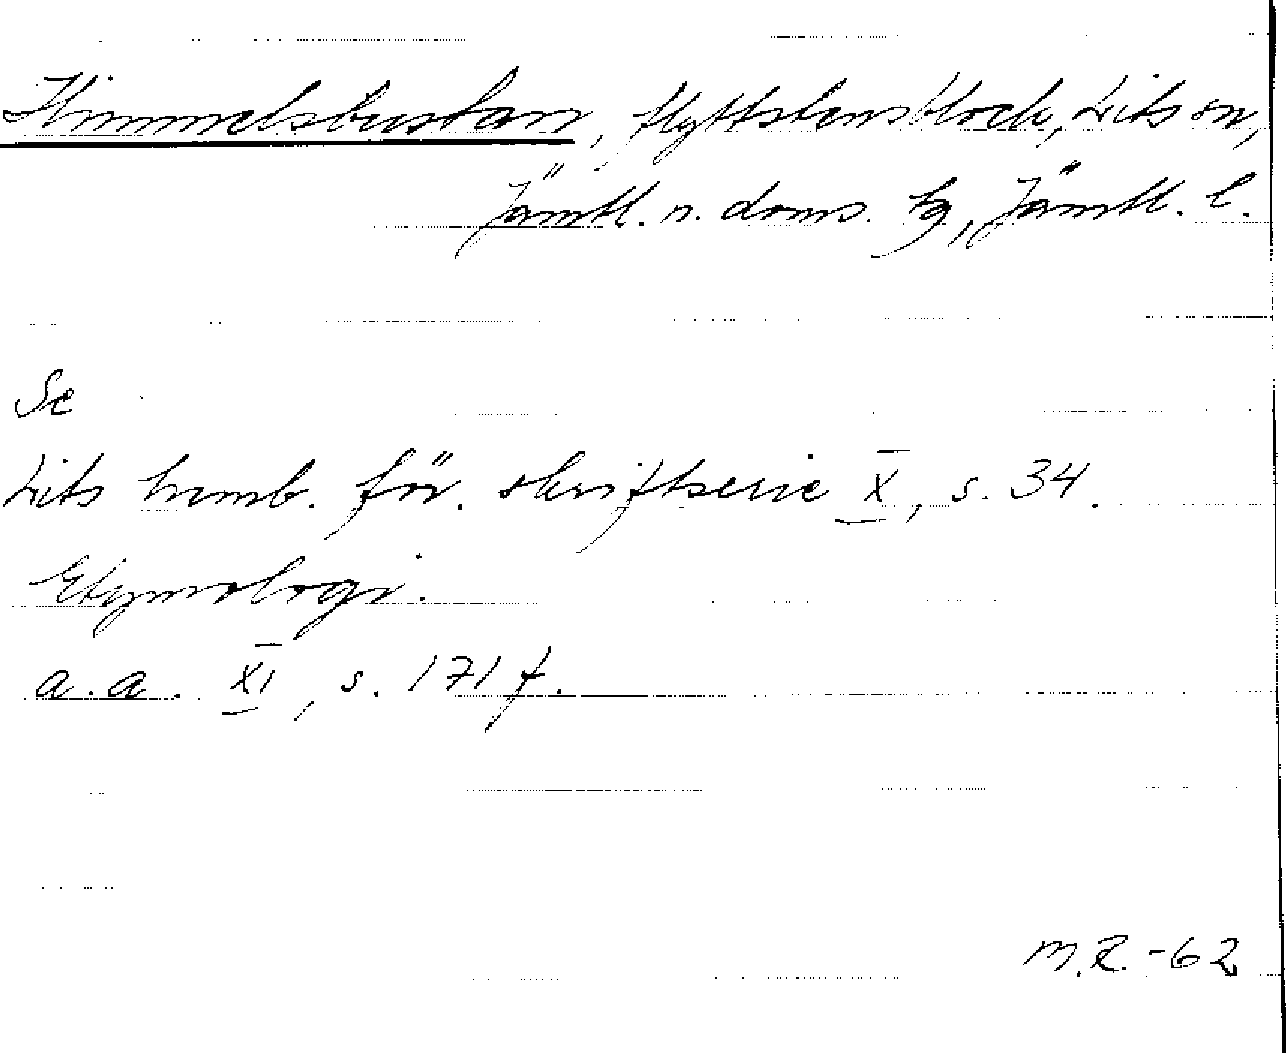 Himmelsbustan, flyttstensblock, Lits sn,
Jämtl. n. doms. tg, Jämtl. l.
Se
Lits hemb. för. skriftserie X, s. 34.
Etymologi.
a.a. XI, s. 171 f.
M.R. -62